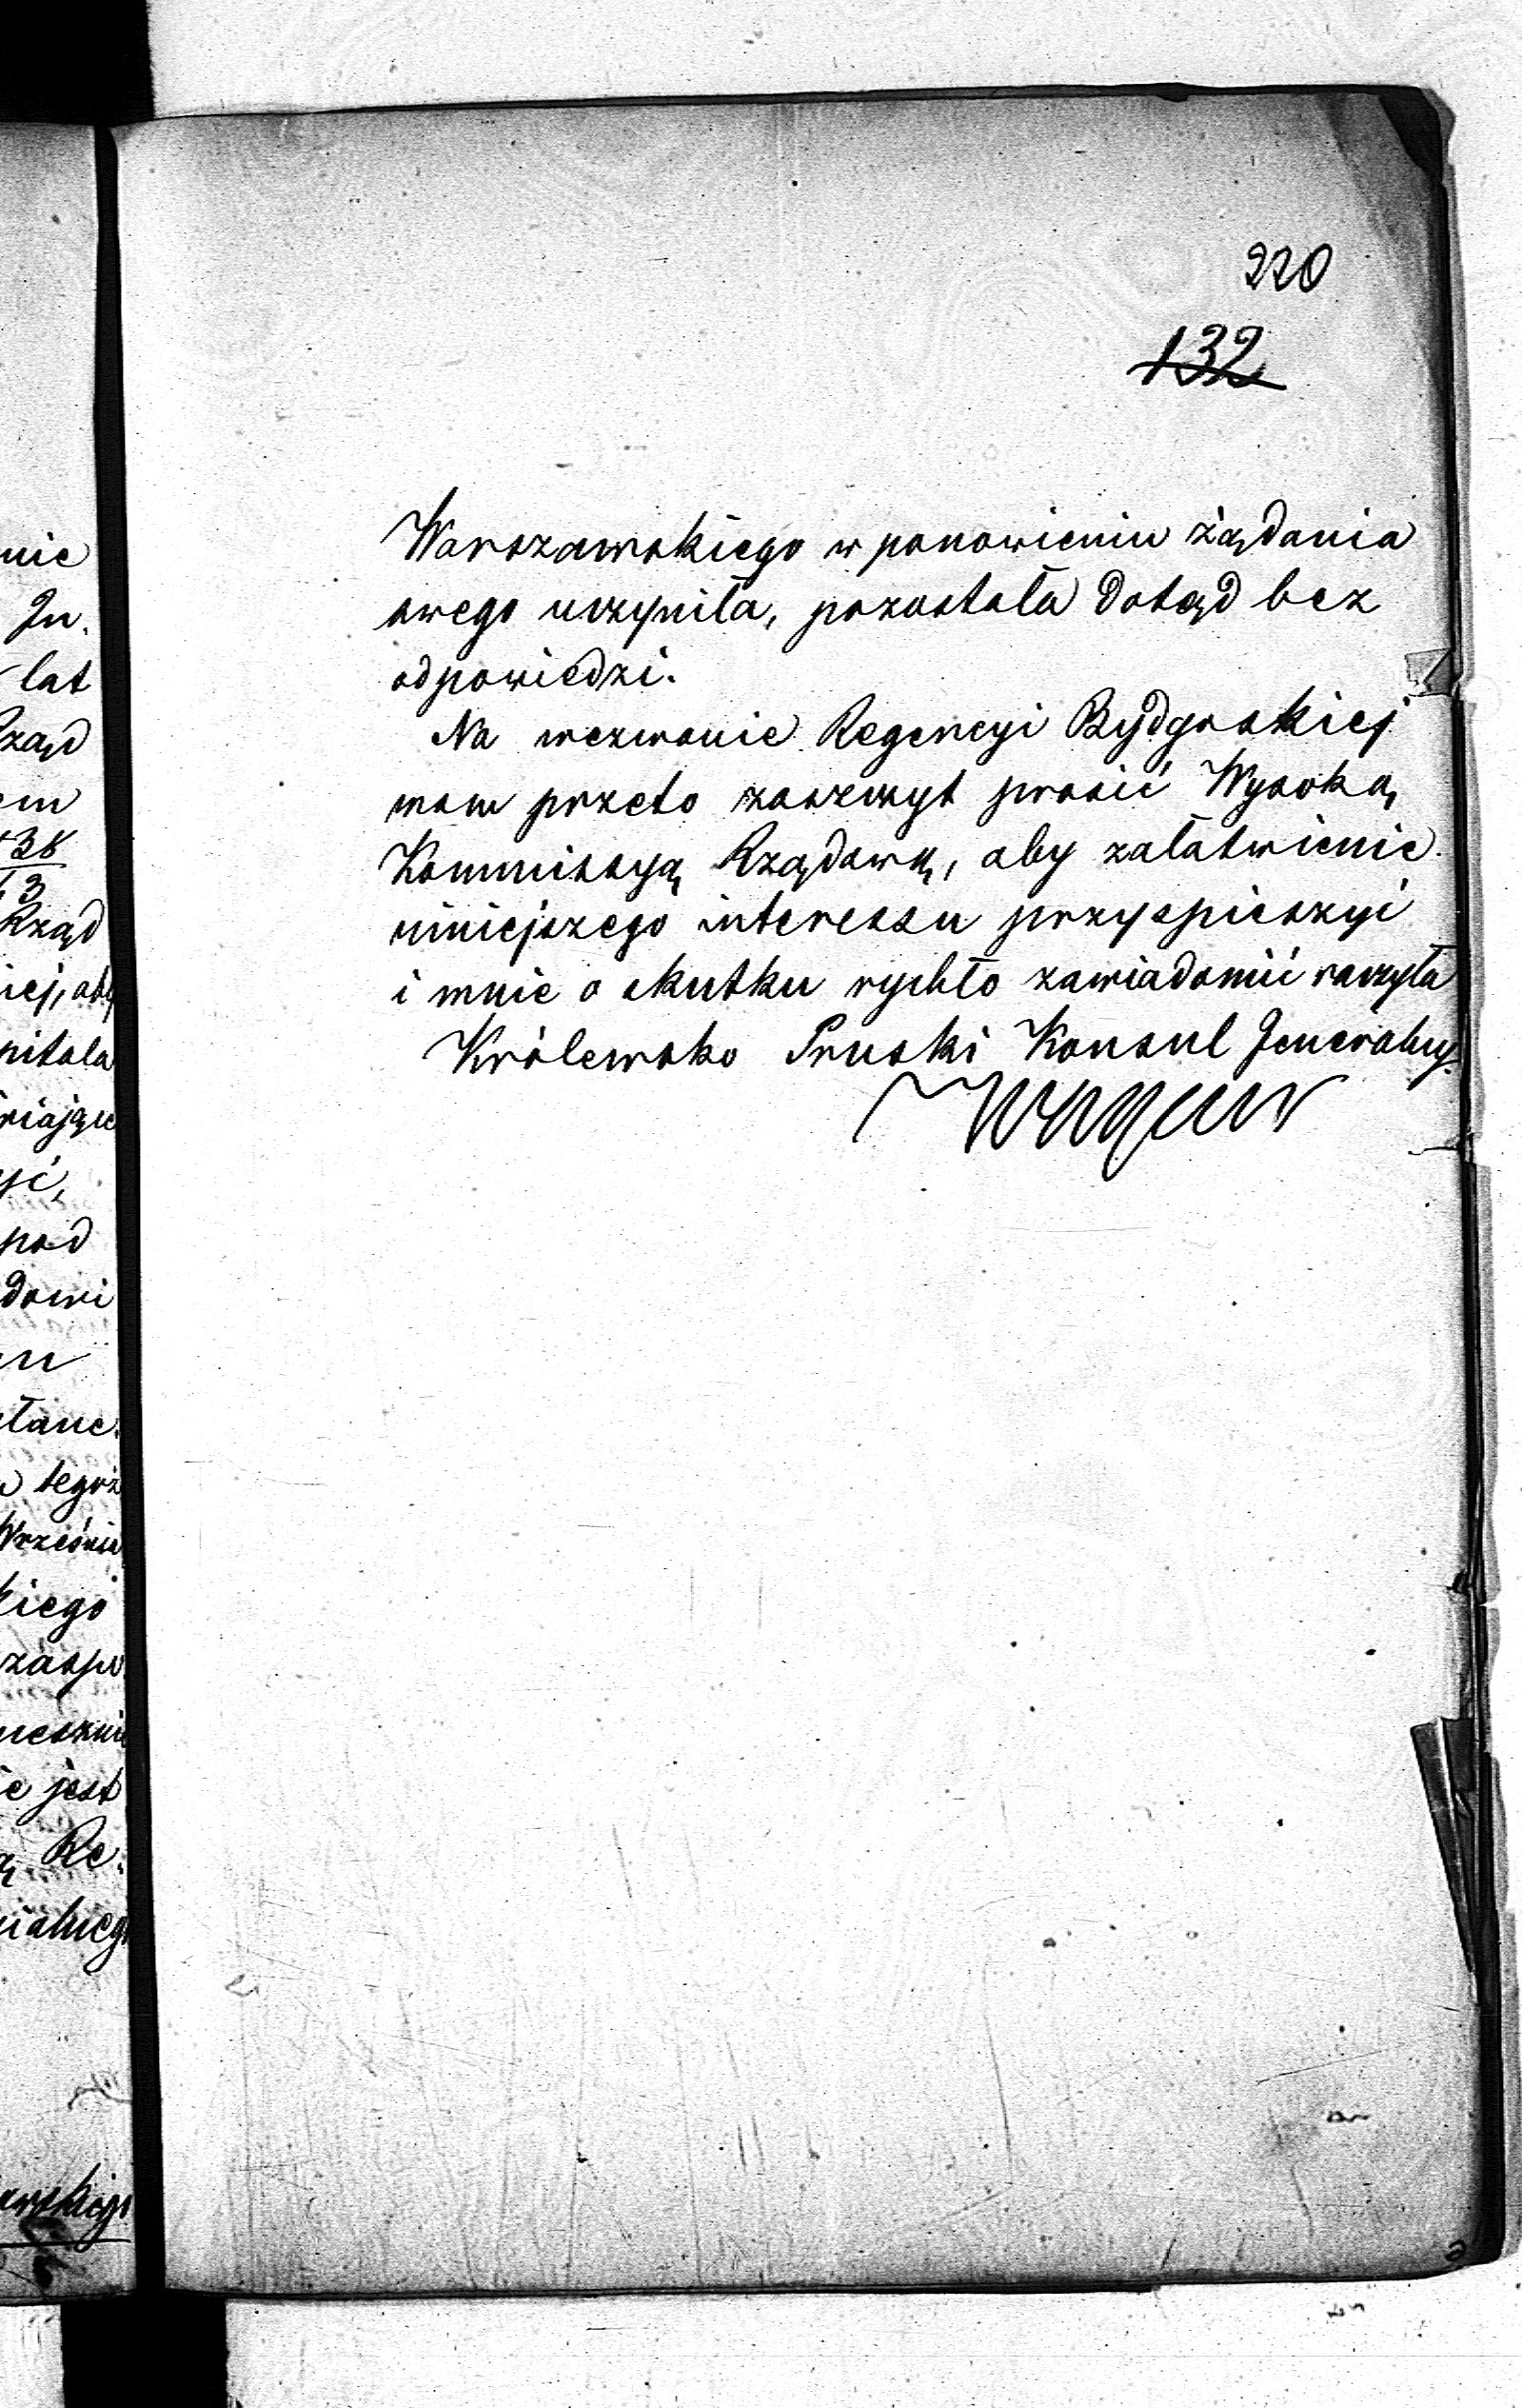 220
132
Warszawskiego w ponowieniu żądania
owego uczyniła, pozostała dotąd bez
odpowiedzi.
Na wezwanie Regencyi Bydgoskiej
mam przeto zaszczyt prosić Wysoką
Kommissyą Rządową, aby załatwienie
niniejszego interessu przyspieszyć
i mnie o skutku rychło zawiadomić raczyła
Królewsko Pruski Konsul Jeneralny
nie
In.
lat
Rząd
38
3
Rząd
niej, aby
pitala
pod
tegoż
Wrześnie
kiego
jest
Re.